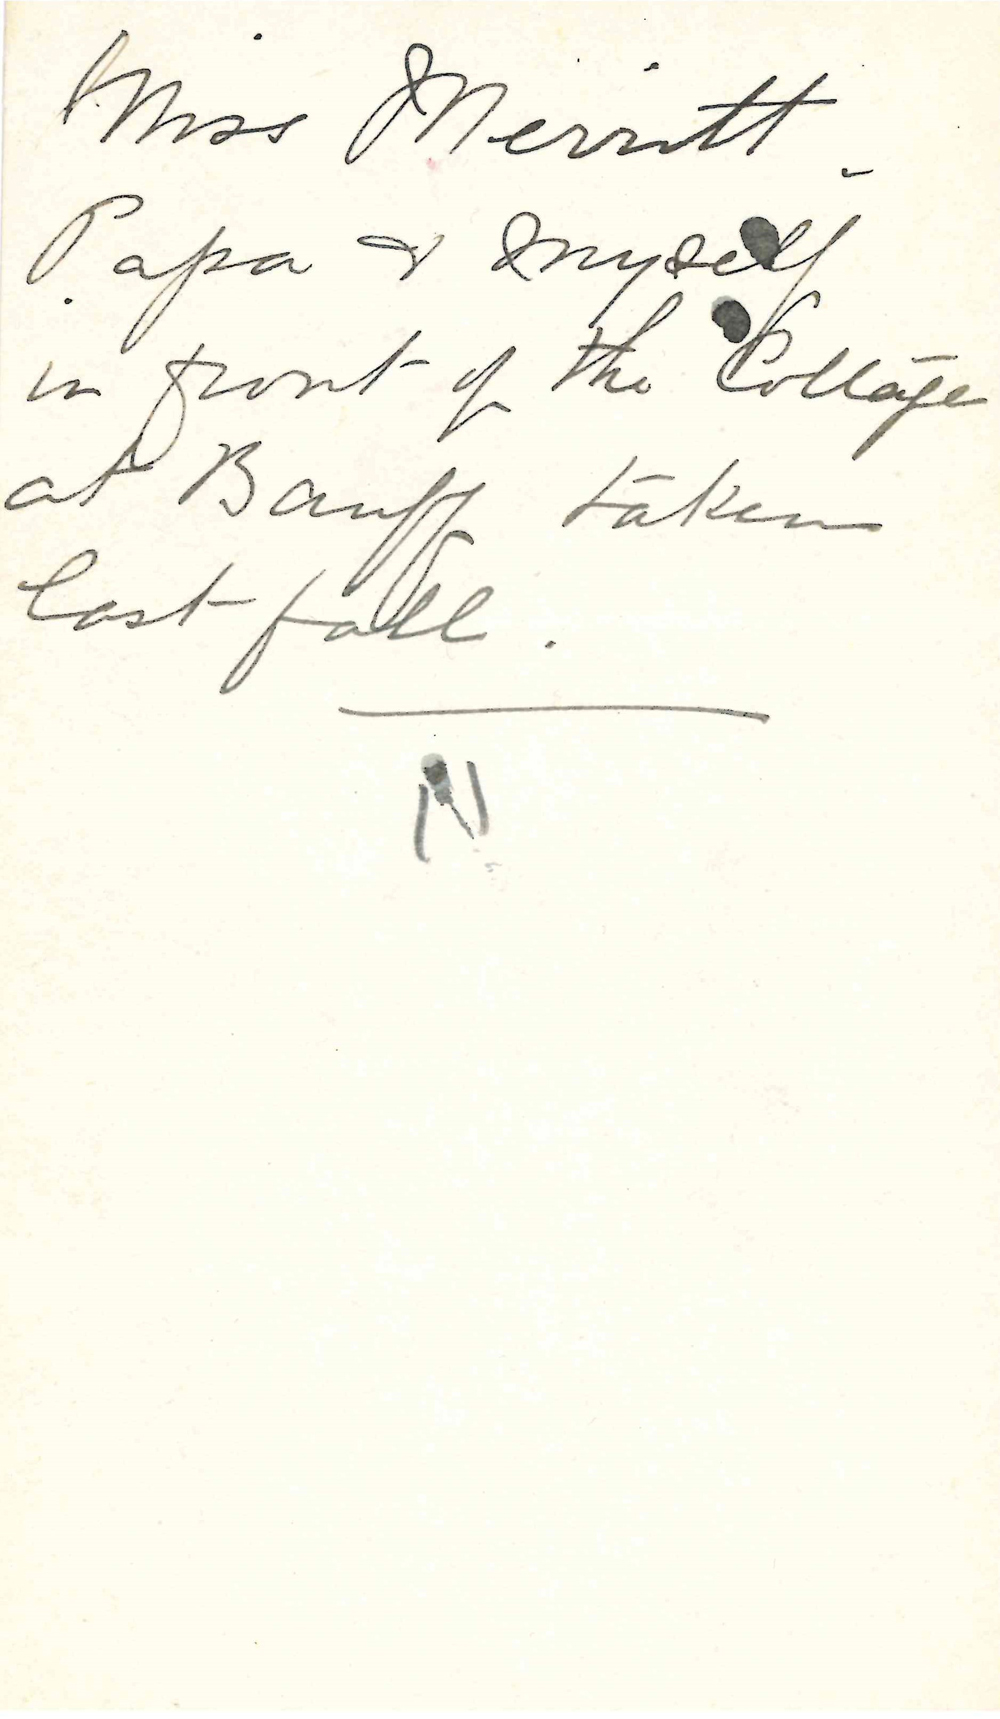 Miss Merritt.
Papa & myself
in front of the Cottage
at Banff taken
last fall.
N